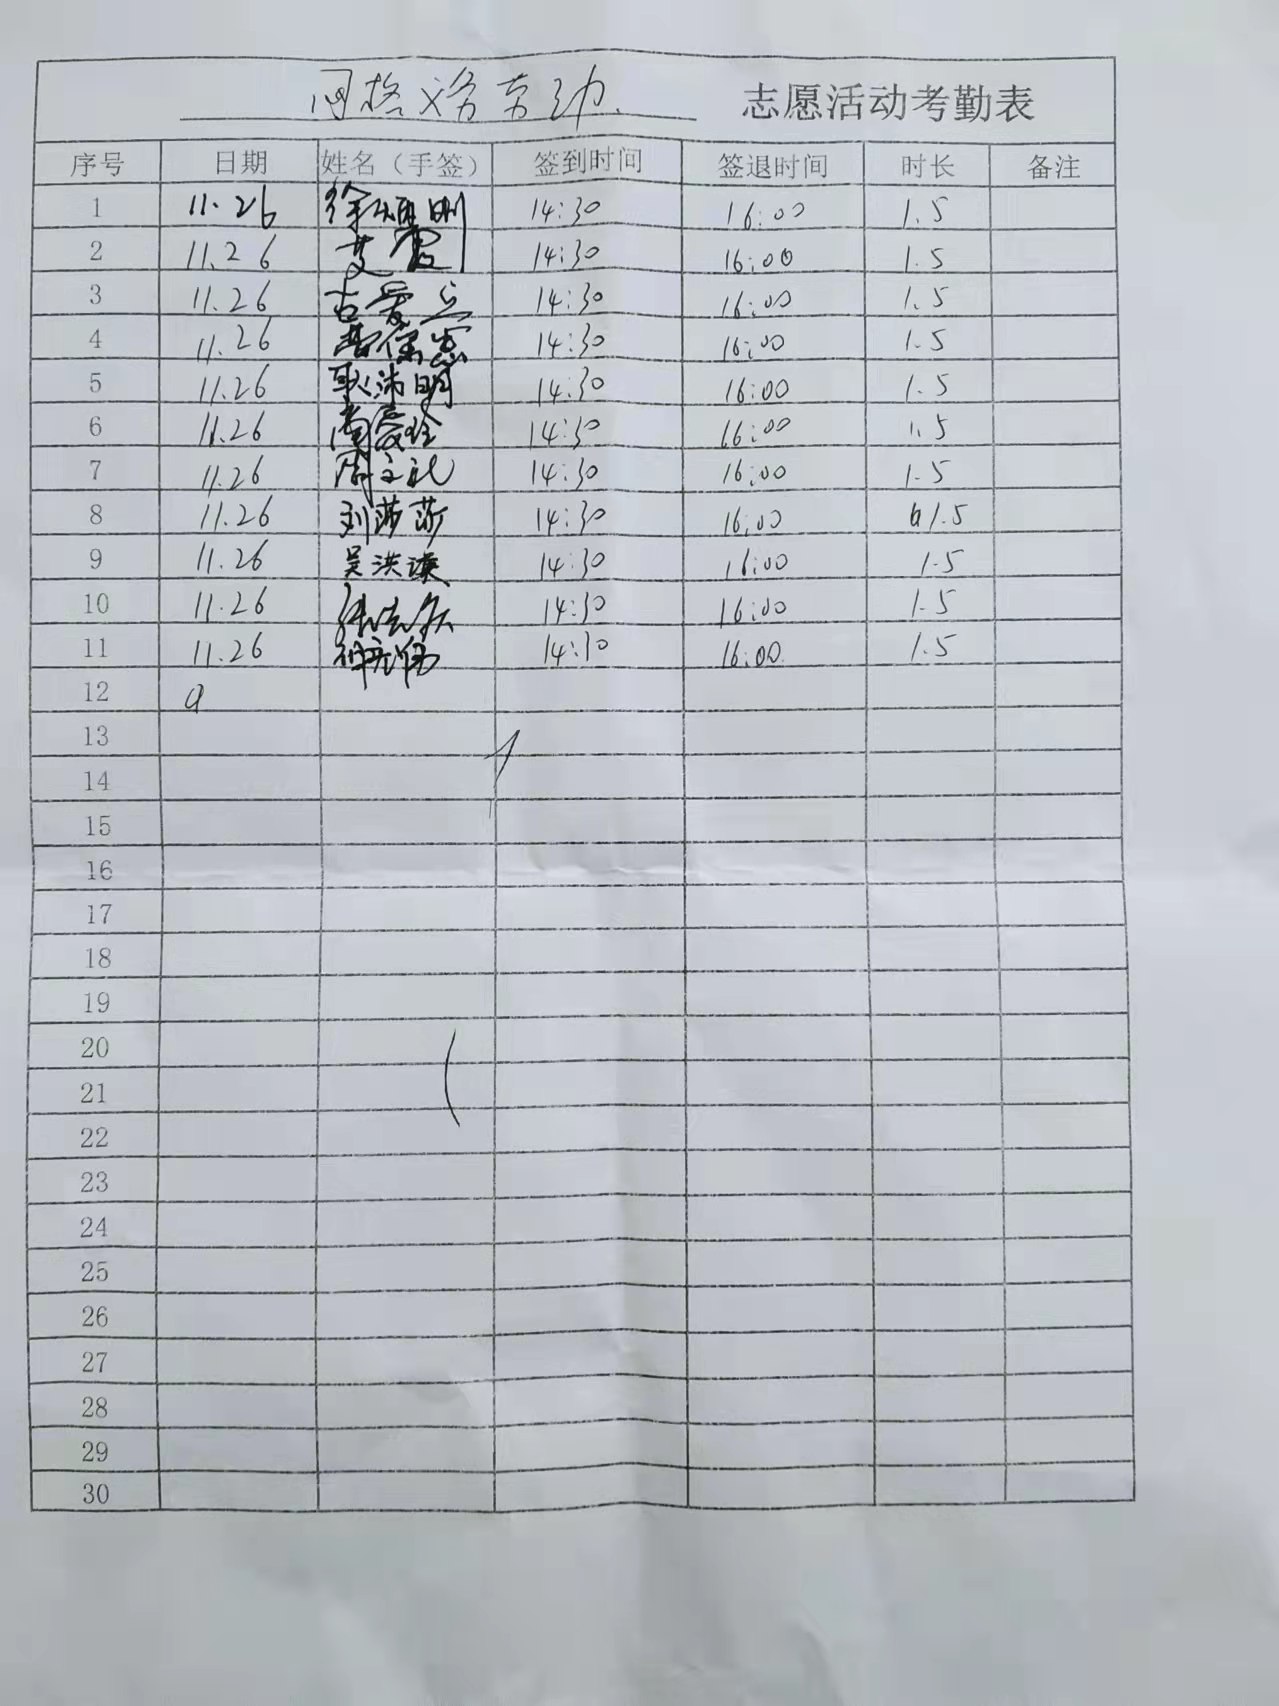 网格义务劳动 志愿活动考勤表
序号 日期 姓名（手签） 签到时间 签退时间 时长 备注
1 11.26 14:30 16:00 1.5
2 11.26 艾霞 14:30 16:00 1.5
3 11.26 古爱兰 14:30 16:00 1.5
4 11.26 14:30 16:00 1.5
5 11.26 耿沛明 14:30 16:00 1.5
6 11.26 14:30 16:00 1.5
7 11.26 周文礼 14:30 16:00 1.5
8 11.26 刘莎莎 14:30 16:00 1.5
9 11.26 吴洪 14:30 16:00 1.5
10 11.26 14:30 16:00 1.5
11 11.26 14:10 16:00 1.5
12
13
14
15
16
17
18
19
20
21
22
23
24
25
26
27
28
29
30